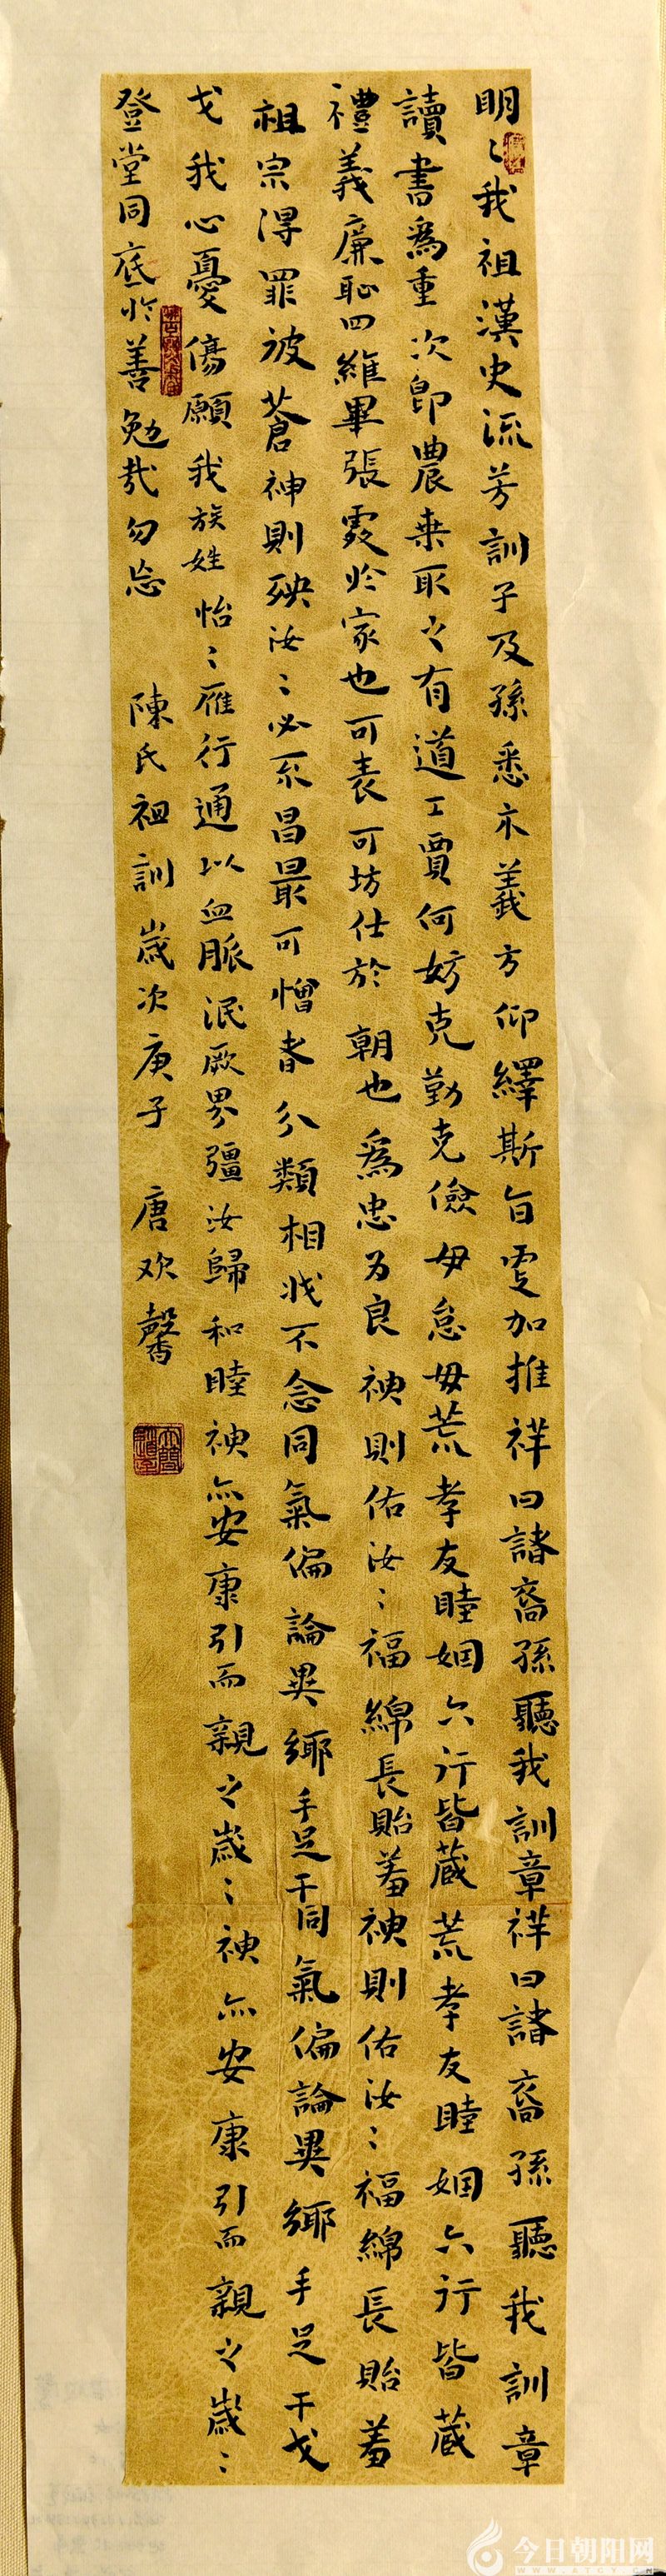 明〻我祖漢史流芳訓子及孫悉本義方仰繹斯旨更加推祥曰諸裔孫聽我訓章祥曰諸裔孫聽我訓章
讀書爲重次即農桒取之有道工賈何妨克勤克儉毋怠毋荒孝友睦姻六行皆蔵荒孝友睦姻六行皆蔵
禮義廉恥四維畢張處於家也可表可坊仕於朝也爲忠为良神則佑汝〻福綿長貽羞神則佑汝〻福綿長貽羞
祖宗得罪彼蒼神則殃汝〻必不昌最可憎者分類相戕不念同氣偏論異鄉手足干同氣偏論異鄉手足干戈
戈我心憂傷願我族姓怡〻雁行通以血脈泯厥界疆汝歸和睦神亦安康引而親之歲〻神亦安康引而親之歲〻
登堂同底於善勉哉勿忘 陳氏祖訓歲次庚子 唐欢馨
今日朝阳网
WWW.ATCYY.CN